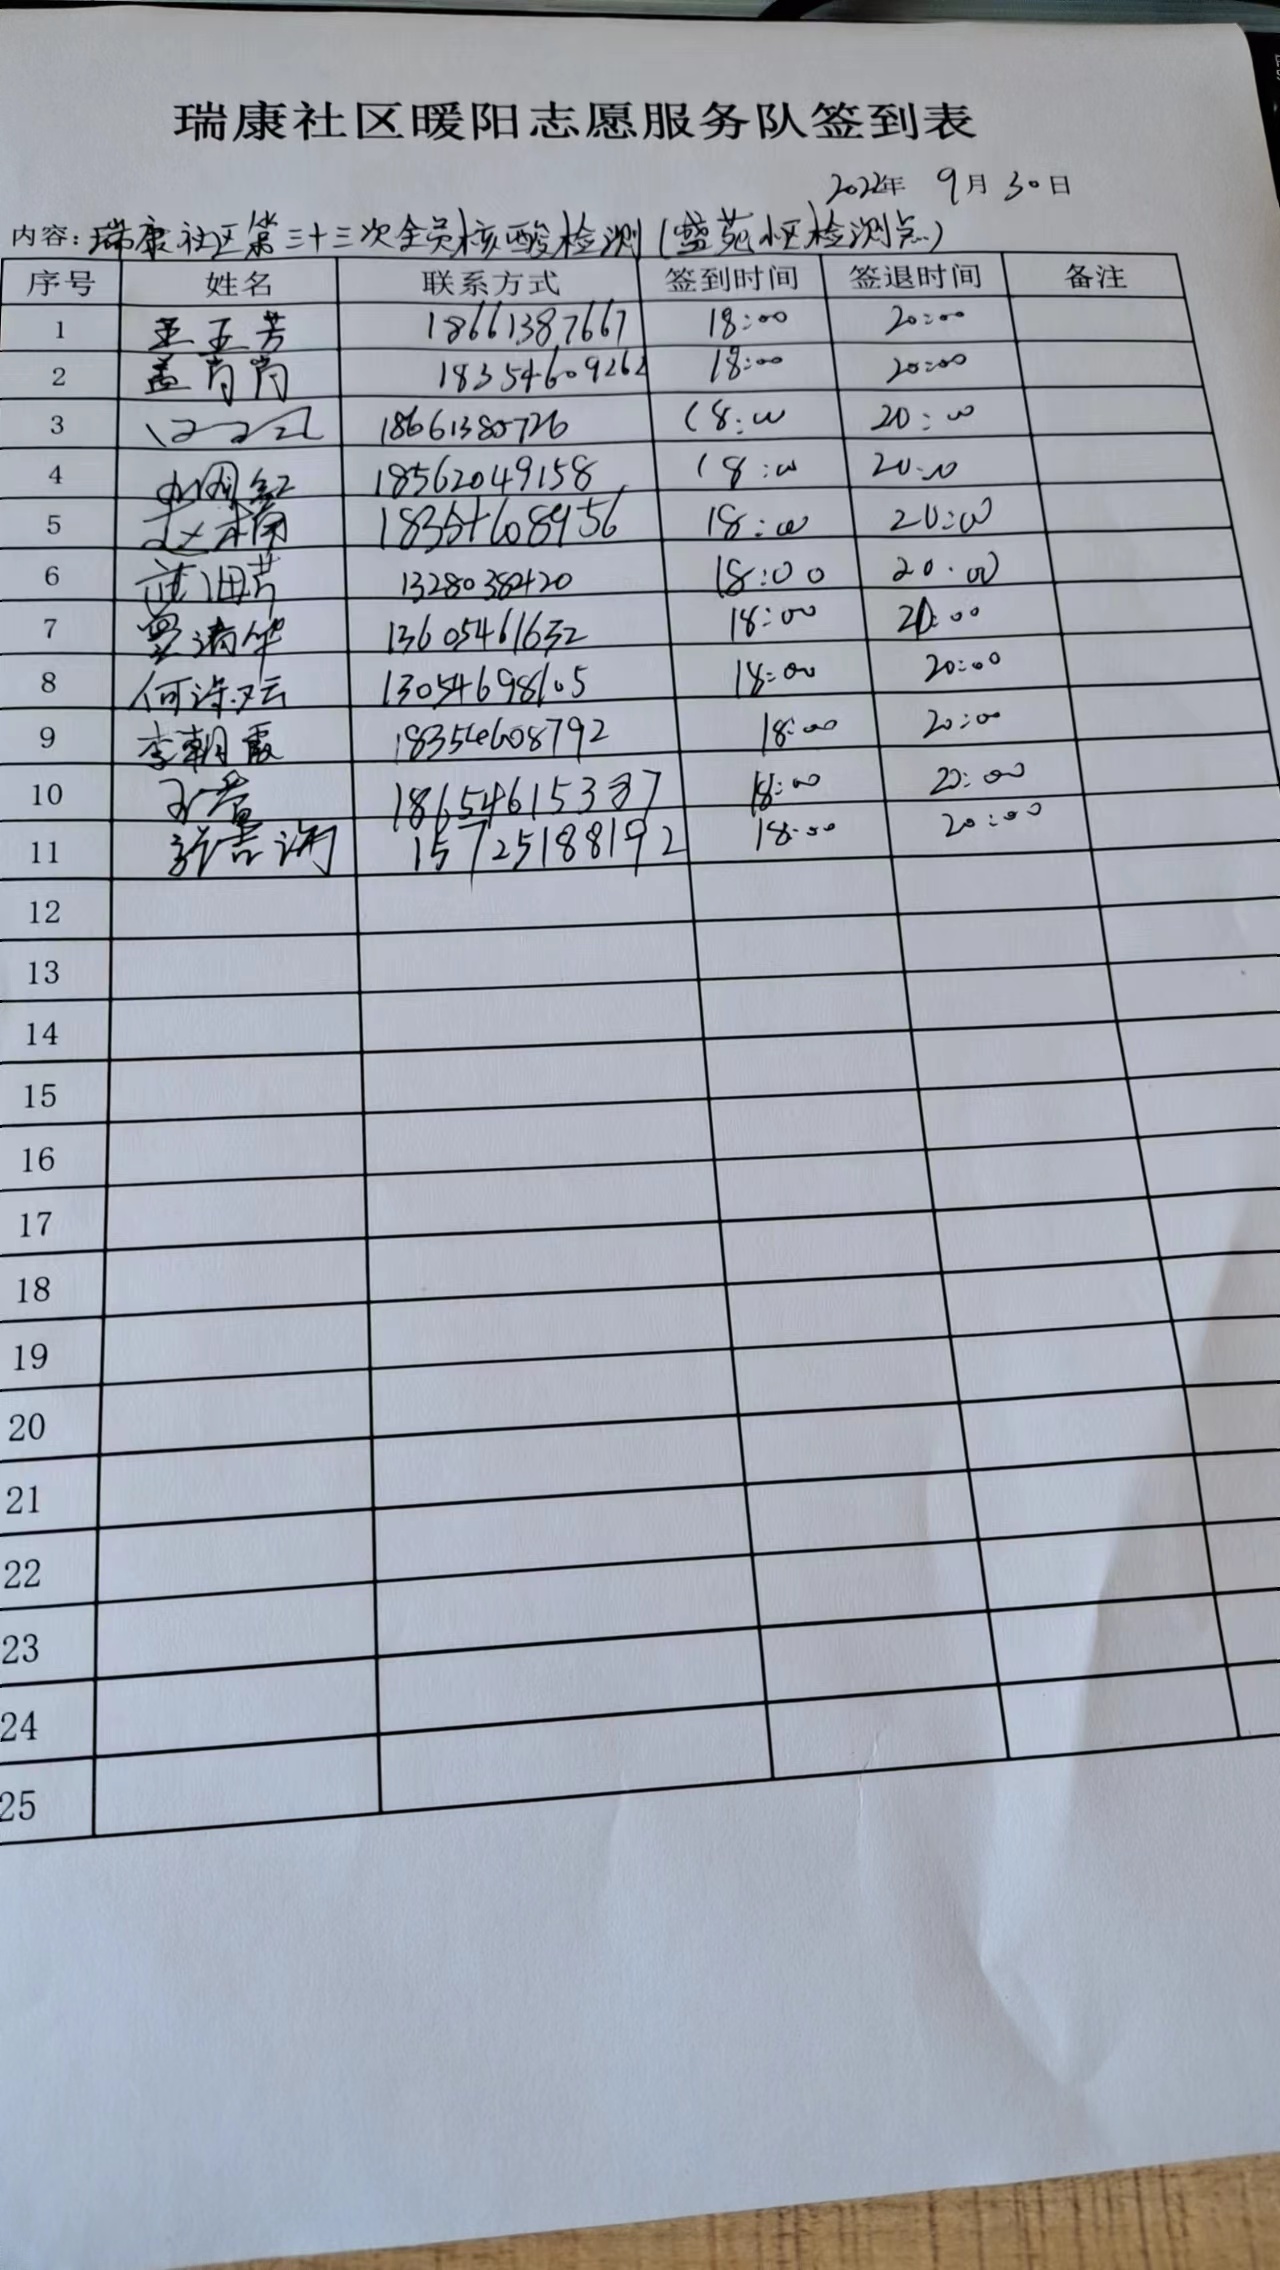 瑞康社区暖阳志愿服务队签到表
2022年 9月 30日
内容：瑞康社区第三十三次全员核酸检测（盛苑小区检测点）
序号 姓名 联系方式 签到时间 签退时间 备注
1 王玉芳 18661387667 18:00 20:00
2 盖肖肖 18354609262 18:00 20:00
3 18661380726 18:00 20:00
4 18562049158 18:00 20:00
5 赵木菊 18354608956 18:00 20:00
6 13280382420 18:00 20:00
7 13605461632 18:00 20:00
8 13054698105 18:00 20:00
9 李朝霞 18354608792 18:00 20:00
10 18654615337 18:00 20:00
11 15725188192 18:00 20:00
12
13
14
15
16
17
18
19
20
21
22
23
24
25